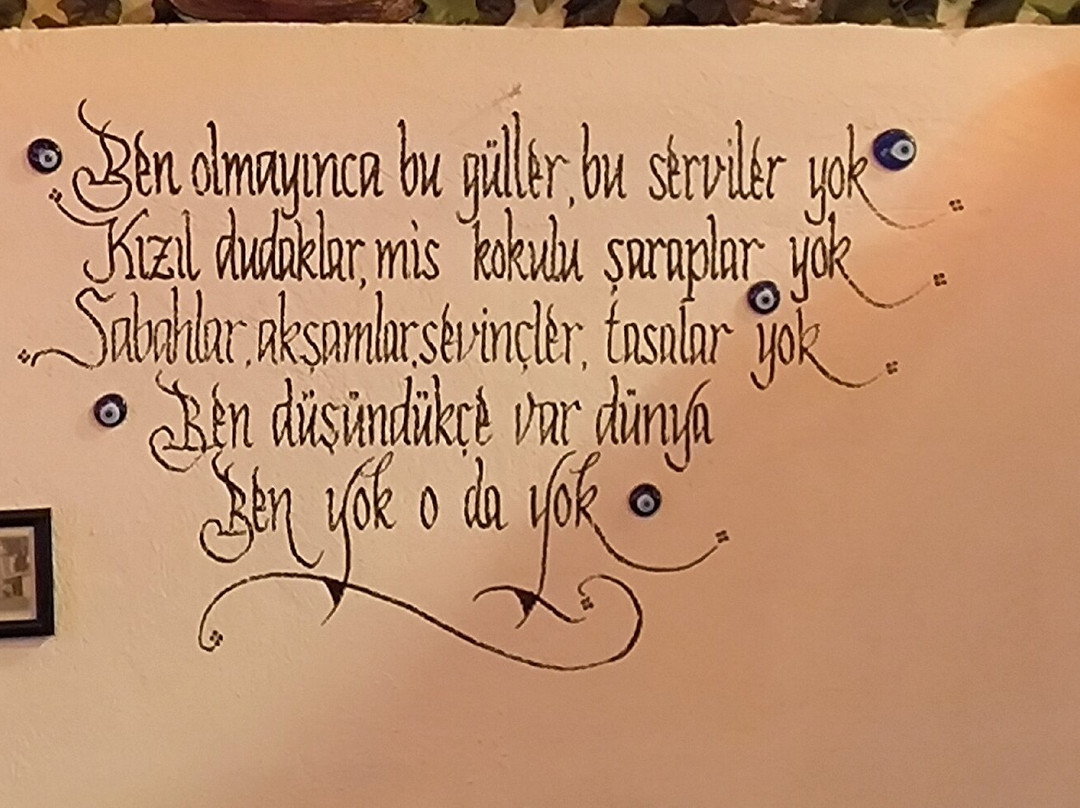 Ben olmayınca bu güller, bu serviler yok
Kızıl dudaklar, mis kokulu şaraplar yok
Sabahlar, akşamlar, sevinçler, tasalar yok
Ben düşündükçe var dünya
Ben yok o da yok